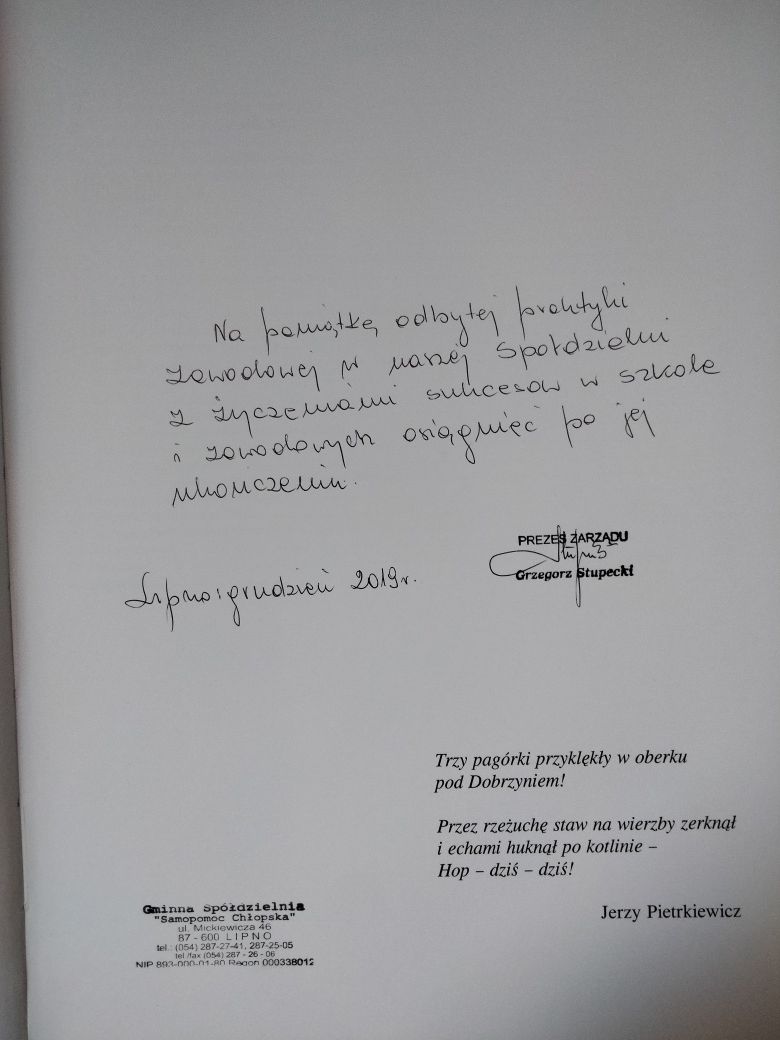 Na pamiątkę odbytej praktyki
zawodowej w naszej Spółdzielni
z życzeniami sukcesów w szkole
i zawodowych osiągnięć po jej
ukończeniu.
PREZES ZARZĄDU
Grzegorz Słupecki
Lipno: grudzień 2019r.
Trzy pagórki przyklękły w oberku
pod Dobrzyniem!
Przez rzeżuchę staw na wierzby zerknął
i echami huknął po kotlinie –
Hop – dziś – dziś!
Jerzy Pietrkiewicz
Gminna Spółdzielnia
"Samopomoc Chłopska"
ul. Mickiewicza 46
87 - 600 LIPNO
tel.: (054) 287-27-41, 287-25-05
tel./fax (054) 287 - 26 - 06
NIP 893-000-01-80 Regon 000338012